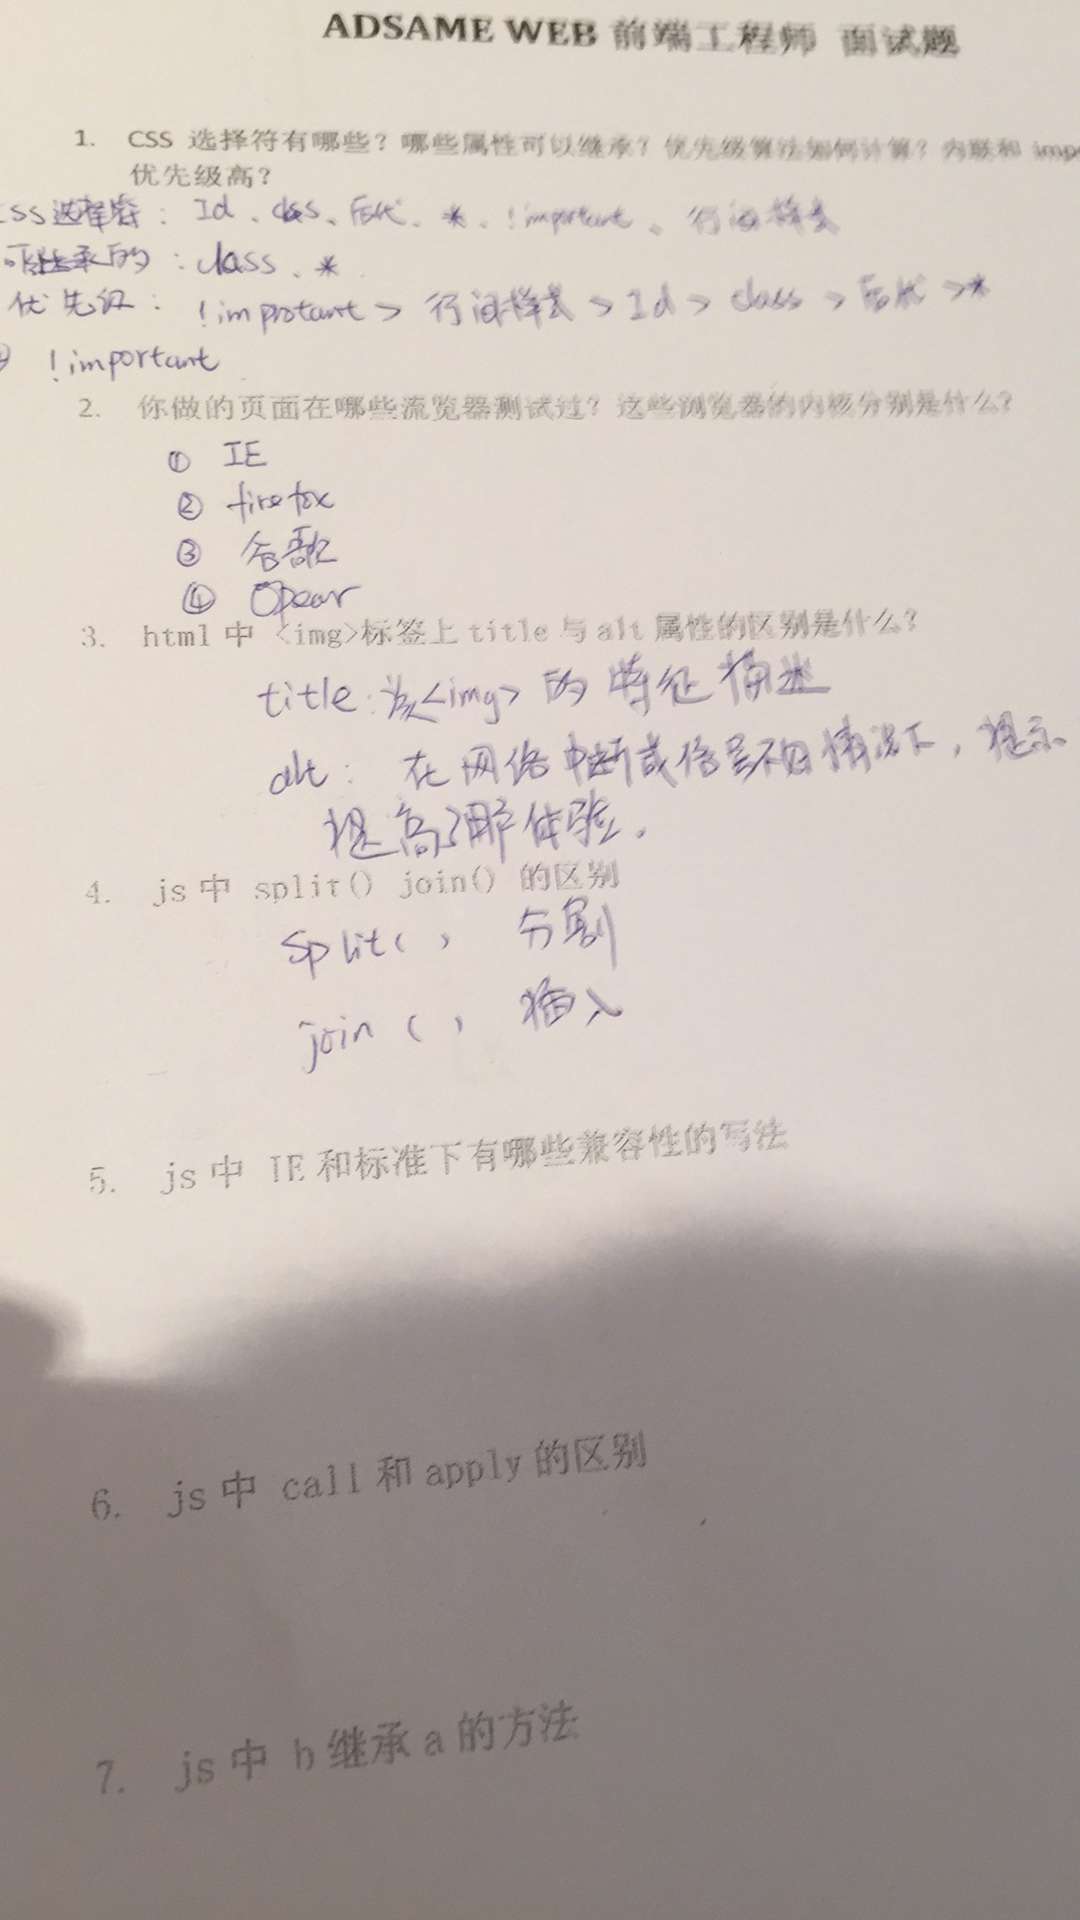 ADSAME WEB 前端工程师 面试题
1. CSS 选择符有哪些？哪些属性可以继承？优先级算法如何计算？内联和 imp
优先级高？
CSS选择符：Id、class、后代、*、!important、行间样式
可继承的：class、*
优先级：!improtant > 行间样式 > Id > class > 后代 > *
!important
2. 你做的页面在哪些流览器测试过？这些浏览器的内核分别是什么？
① IE
② firefox
③ 谷歌
④ Opear
3. html 中 <img>标签上 title 与 alt 属性的区别是什么？
title:为<img>的特征描述
alt: 在网络中断或信号不好情况下，提示
提高了用户体验.
4. js 中 split() join() 的区别
split() 分割
join() 插入
5. js 中 IE 和标准下有哪些兼容性的写法
6. js 中 call 和 apply 的区别
7. js 中 b 继承 a 的方法